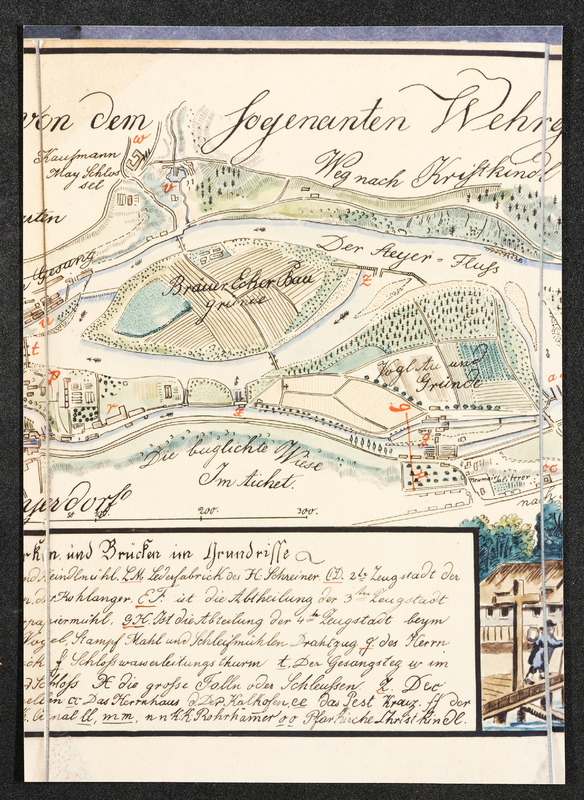 von dem sogenanten Wehrg
Kaufmann
May Schlos
sel
w
v
Weg nach Kristkindl
uten
Gesang
Der Steyer=Fluss
Brauer Eher Bau
gründe
z
u
t
p
r
x
Voglsau und
Gründe
g
a
g
H
Die buglichte Wiese
Im Aichet
nach
yerdorf
200. 300.
rken und Brücken im Grundrisse
Ledefabrick des H: Schreiner CD. 2te Zeugstadt der
EF ist die Abtheilung der 3ten Zeugstadt
gH. Ist die Abteilung der 4ten Zeugstadt beym
Vögel, Stampf Mahl und Schleifmühlen Drahtzug q des Herrn
ck f Schloss wasserleitungs thurm t. Der Gesangsteg w im
Schloss X die grosse Falln oder Schleussen Z. Die
a Das Herrnhaus Der Kalkofen, ee das Pest Kreuz. ff der
Canal ll, mm, nn K.K. Rohrhämer oo Pfarkirche Christkindl.